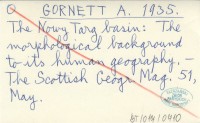 O GORNETT A. 1935.
The Nowy Targ basin: The
morphological background
to its human geography. –
The Scottish Geogr. Mag. 51,
May.